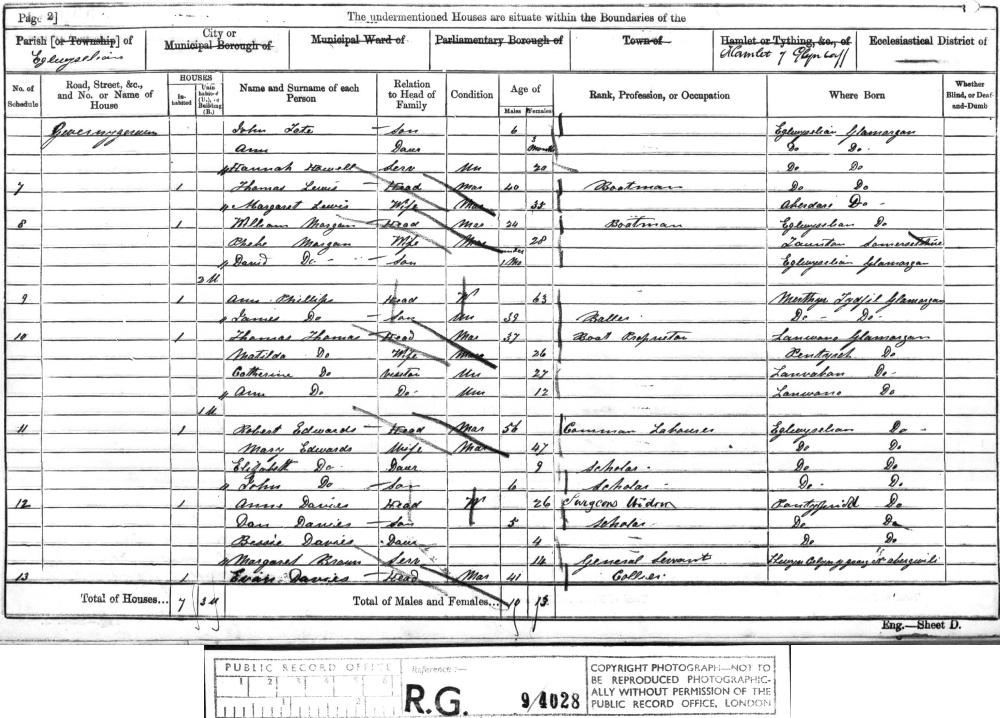 Page 2] The undermentioned Houses are situate within the Boundaries of the
Parish [or Township] of City or Municipal Borough of Municipal Ward of Parliamentary Borough of Town of Hamlet or Tything, &c., of Ecclesiastical District of
Eglwysilian Hamlet of Glyntaff
No. of Schedule Road, Street, &c., and No. or Name of House HOUSES Inhabited Uninhabited (U.), or Building (B.) Name and Surname of each Person Relation to Head of Family Condition Age of Males Females Rank, Profession, or Occupation Where Born Whether Blind, or Deaf-and-Dumb
John Tate Son 6 Eglwysilian Glamorgan
Ann Daur 3 Months Do Do
Hannah Howell Serv Un 20 Do Do
7 1 Thomas Lewis Head Mar 40 Boatman Do Do
Margaret Lewis Wife Mar 35 Aberdare Do
8 1 William Morgan Head Mar 24 Boatman Eglwysilian Do
Phebe Morgan Wife Mar 28 Taunton Somersetshire
David Do Son 1 Mo Eglwysilian Glamorgan
2 U
9 1 Ann Phillips Head W 63 Merthyr Tydfil Glamorgan
James Do Son Un 39 Baller Do Do
10 1 Thomas Thomas Head Mar 37 Boat Proprietor Lanwono Glamorgan
Matilda Do Wife Mar 26 Pentyrch Do
Catherine Do Visitor Un 27 Lanvabon Do
Ann Do Do Un 12 Lanwono Do
1 U
11 1 Robert Edwards Head Mar 56 Common Labourer Eglwysilian Do
Mary Edwards Wife Mar 47 Do Do
Elizabeth Do Daur 9 Scholar Do Do
John Do Son 6 Scholar Do Do
12 1 Anne Davies Head W 26 Surgeons Widow Pontypridd Do
Dan Davies Son 5 Scholar Do Do
Bessie Davies Daur 4 Do Do
Margaret Brown Serv 14 General Servant
13 1 Evan Davies Head Mar 41 Collier
Total of Houses... 7 3 U Total of Males and Females... 10 13
Eng.—Sheet D.
PUBLIC RECORD OFFICE
1 2 3 4 5 6
1 2
Reference:—
R.G. 9/4028
COPYRIGHT PHOTOGRAPH—NOT TO
BE REPRODUCED PHOTOGRAPHIC-
ALLY WITHOUT PERMISSION OF THE
PUBLIC RECORD OFFICE, LONDON